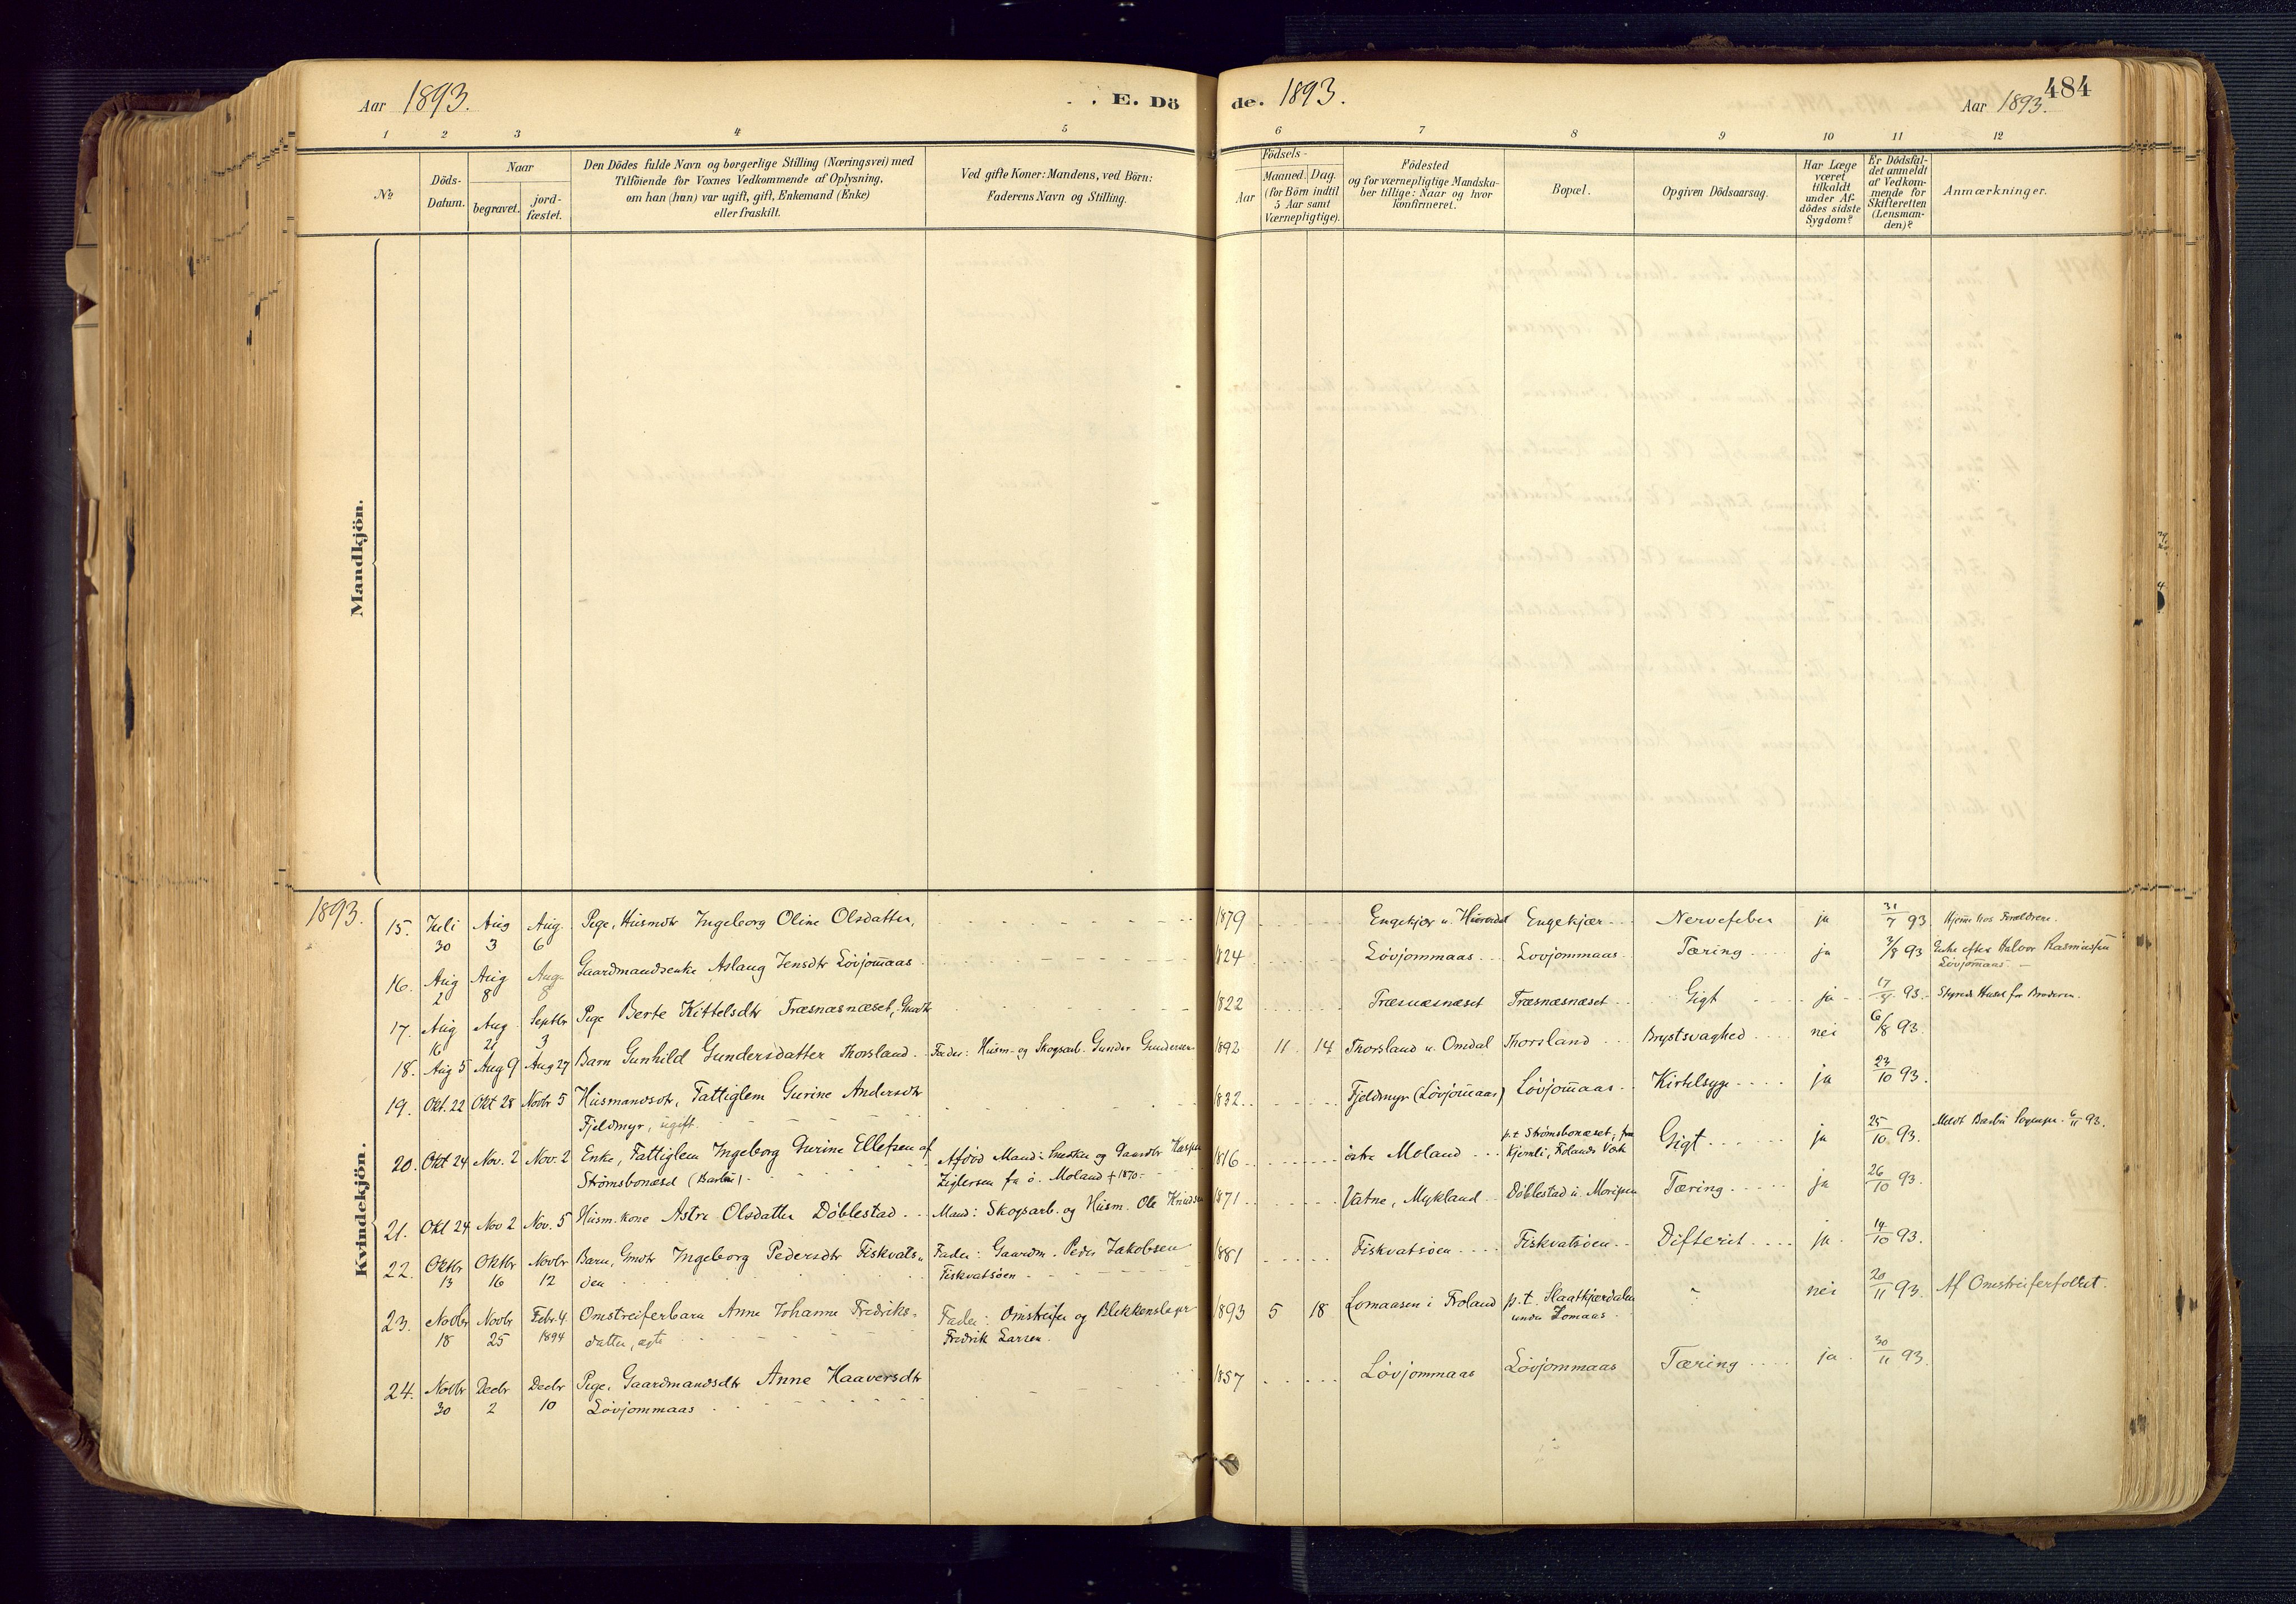 Aar 1893.
E. Dö
de. 1893.
Aar 1893.
484
1 2 3 4 5 6 7 8 9 10 11 12
No
Döds-
Datum.
Naar
begravet.
jord-
fæstet.
Den Dödes fulde Navn og borgerlige Stilling (Næringsvei) med
Tilföiende for Voxnes Vedkommende af Oplysning,
om han (hun) var ugift, gift, Enkemand (Enke)
eller fraskilt.
Ved gifte Koner: Mandens, ved Börn:
Faderens Navn og Stilling.
Födsels-
Aar
Maaned. Dag.
(for Börn indtil
5 Aar samt
Værnepligtige).
Födested
og for værnepligtige Mandska-
ber tillige: Naar og hvor
konfirmeret.
Bopæl.
Opgiven Dödsaarsag.
Har Læge
været
tilkaldt
under Af-
dödes sidste
Sygdom?
Er Dödsfal-
det anmeldt
af Vedkom-
mende for
Skifteretten
(Lensman-
den)?
Anmærkninger.
Mandkjön.
Kvindekjön.
1893.
15. Juli 30 Aug 3 Aug. 6 Pige, Husmdtr Ingeborg Oline Olsdatter, 1879 Engekjær u. Engekjær Nervefeber ja 31/7 93 Hjemme hos Forældrene.
16. Aug 2 Aug 8 Aug 8 Gaardmandsenke Aslaug Jensdtr Lövjomaas 1824 Lövjommaas Lovjommaas Tæring ja 3/8 93 Enke efter Halvor Rasmussen
Lövjomaas
17. Aug 16 Aug 21 Septbr 3 Pige Berte Kittelsdtr Træsnæsnæset, Gmdtr 1822 Træsnæsnæset Træsnæsnæset Gigt ja 17/8 93. Styrede Huset for Broderen.
18. Aug 5 Aug 9 Aug 27 Barn Gunhild Gundersdatter Thorsland. Fader: Husm- og Skogsarb. Gunder Gundersen 1892 11. 14 Thorsland u. Omdal Thorsland Brystsvaghed nei 6/8 93.
19. Okt. 22 Okt 28 Novbr 5 Husmandsdtr, Fattiglem Gurine Andersdtr 1832 Fjeldmyr (Lövjomaas) Lövjomaas Kirtelsyge ja 23/10 93.
Fjeldmyr, ugift.
20. Okt 24 Nov. 2 Nov. 2 Enke, Fattiglem Ingeborg Gurine Ellefsen af Afdöd Mand: og 1816 östre Moland p.t. Strömsbonæset, fra Gigt ja 25/10 93. Meldt Barbu 6/11 93.
Strömsbonæset (Barbu). Ziglersen fra ö. Moland + 1870. Kjemli, Frolands Værk
21. Okt 24 Nov 2 Nov. 5 Husm. kone Astri Olsdatter Döblestad. Mand: Skogsarb. og Husm. Ole Knudsen 1871 Vatne, Mykland Döblestad u. Tæring ja 26/10 93.
22. Oktbr 13 Oktbr 16 Novbr 12 Barn, Gmdtr Ingeborg Pedersdtr Fiskvats- Fader: Gaardm. Peder Jakobsen 1881 Fiskvatsöen Fiskvatsöen Difterit ja 14/10 93.
öen Fiskvatsöen
23. Novbr 18 Novbr 25 Febr. 4. 1894 Omstreiferbarn Anne Johanne Fredriks- Fader: Omstreifer og Blikkenslager 1893 5 18 Lomaasen i Froland p.t. Slaatkjærdalen nei 20/11 93. Af Omstreiferfolket.
datter, ægte Fredrik Larsen. under Lomaas
24. Novbr 30 Decbr 2 Decbr 10 Pige, Gaardmandsdtr Anne Haaversdtr 1857 Lövjommaas Lövjommaas Tæring ja. 30/11 93.
Lövjommaas